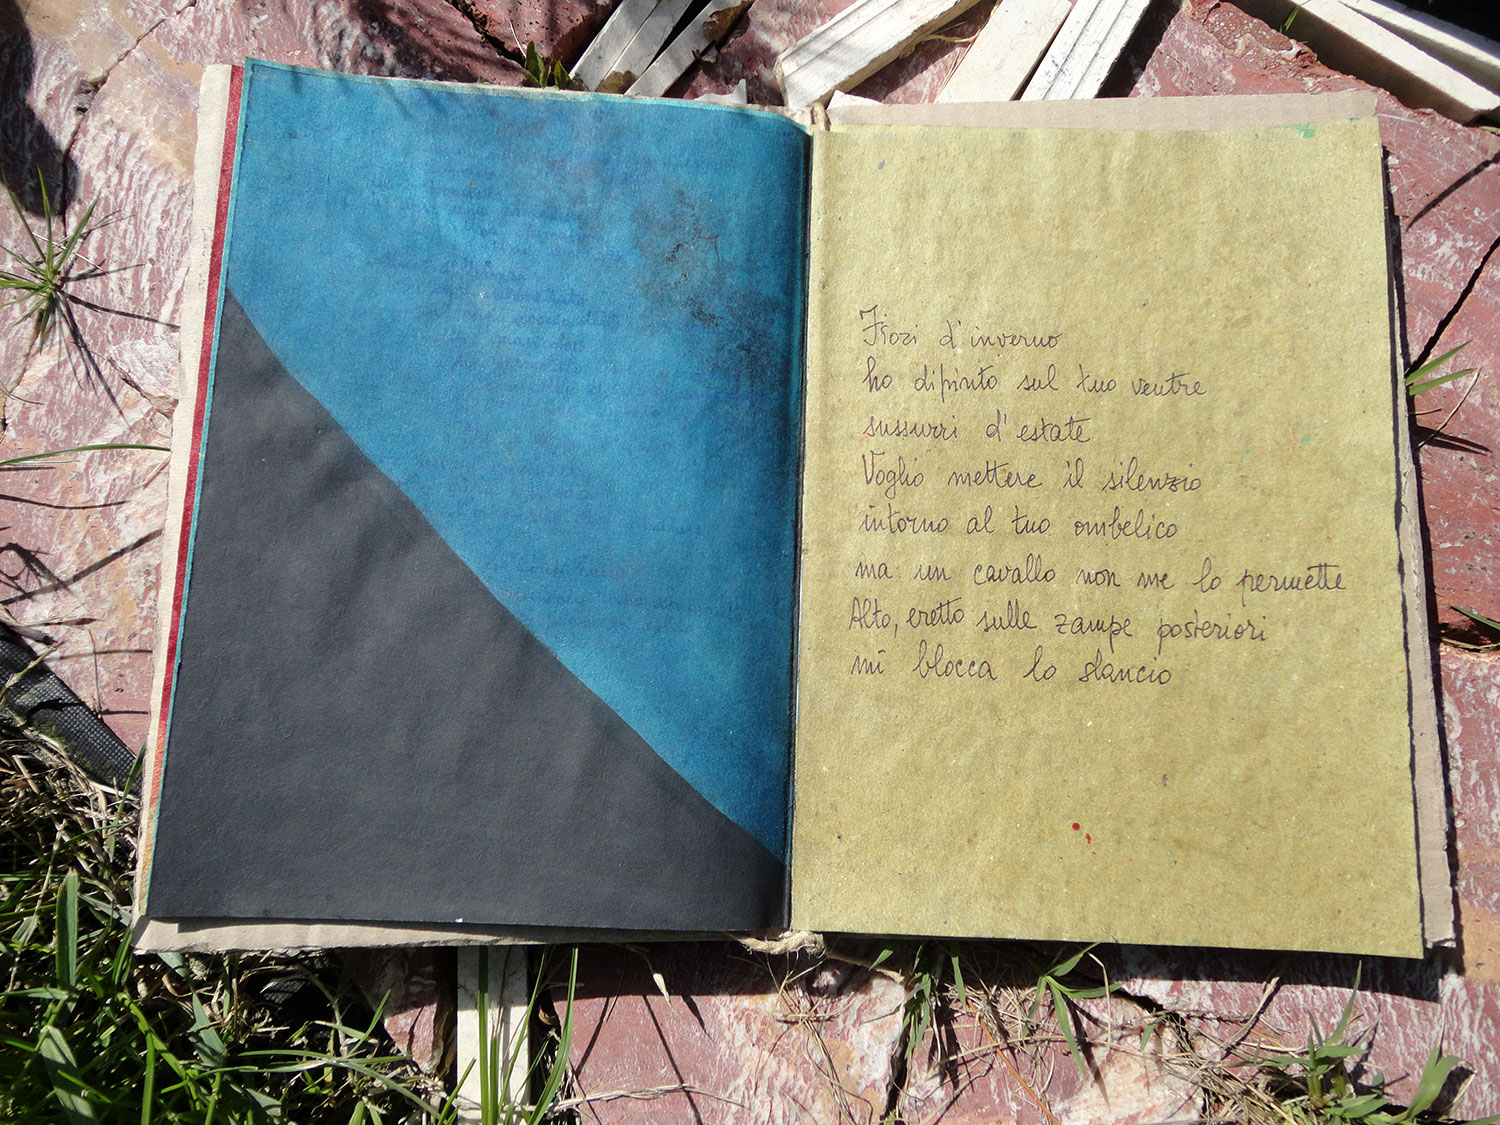 Fiori d'inverno
ho dipinto sul tuo ventre
sussurri d'estate
Voglio mettere il silenzio
intorno al tuo ombelico
ma un cavallo non me lo permette
Alto, eretto sulle zampe posteriori
mi blocca lo slancio